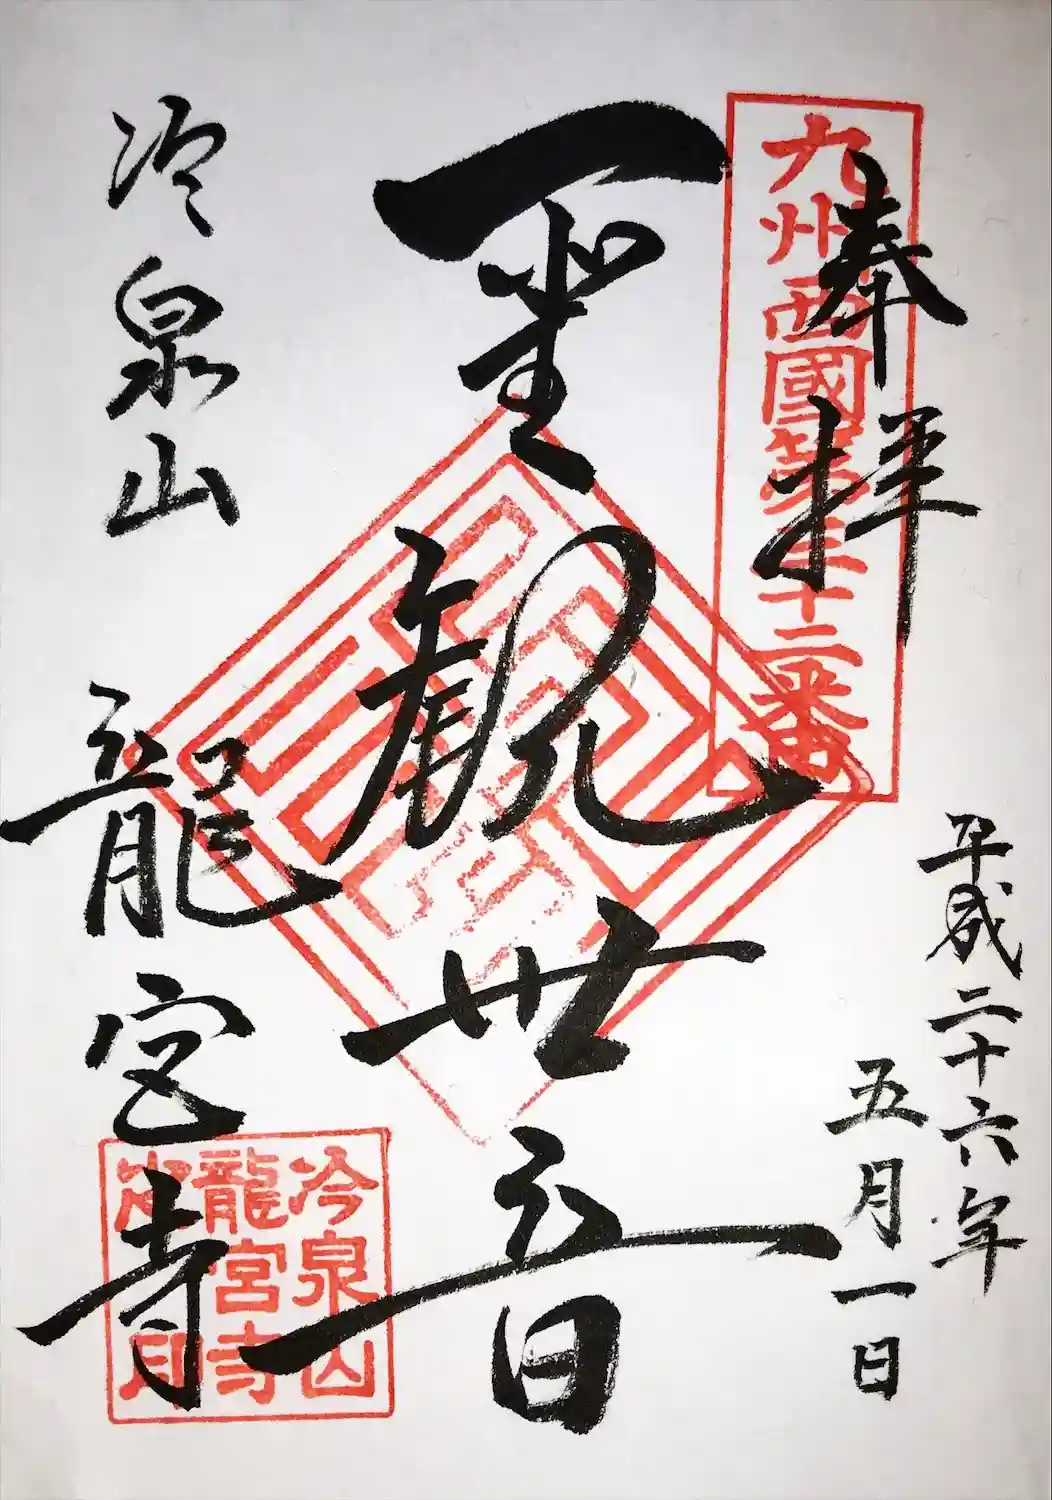 奉拝
九州西國第三十二番
平成二十六年
五月一日
聖観世音
冷泉山
龍宮寺
冷泉山
龍宮寺